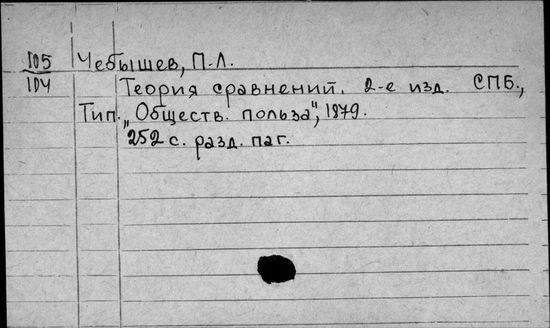 105 Чебышев, П.Л.
104 Теория сравнений. 2-е изд. СПб.,
Тип. „Обществ. польза", 1879.
252 с. разд. паг.